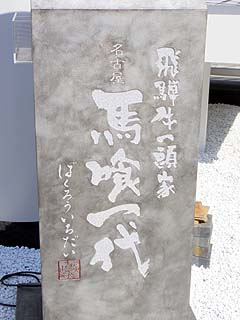 飛騨牛一頭家
名古屋
馬喰一代
ばくろういちだい